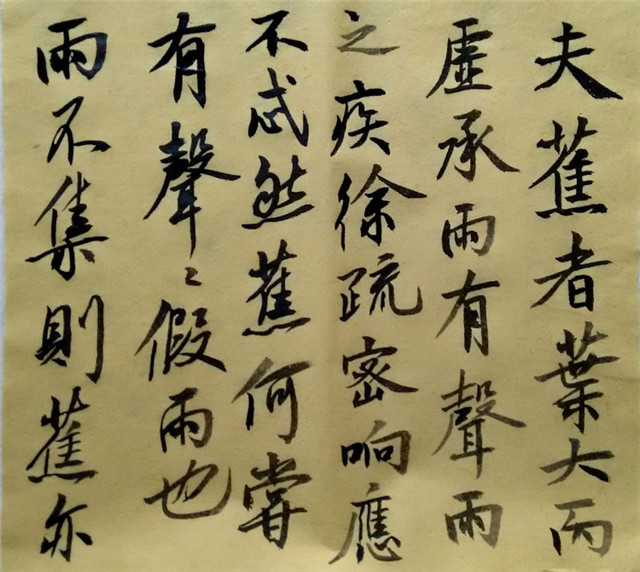 夫蕉者葉大而
虛承雨有聲雨
之疾徐疏密响應
不忒然蕉何嘗
有聲〻假雨也
雨不集則蕉亦